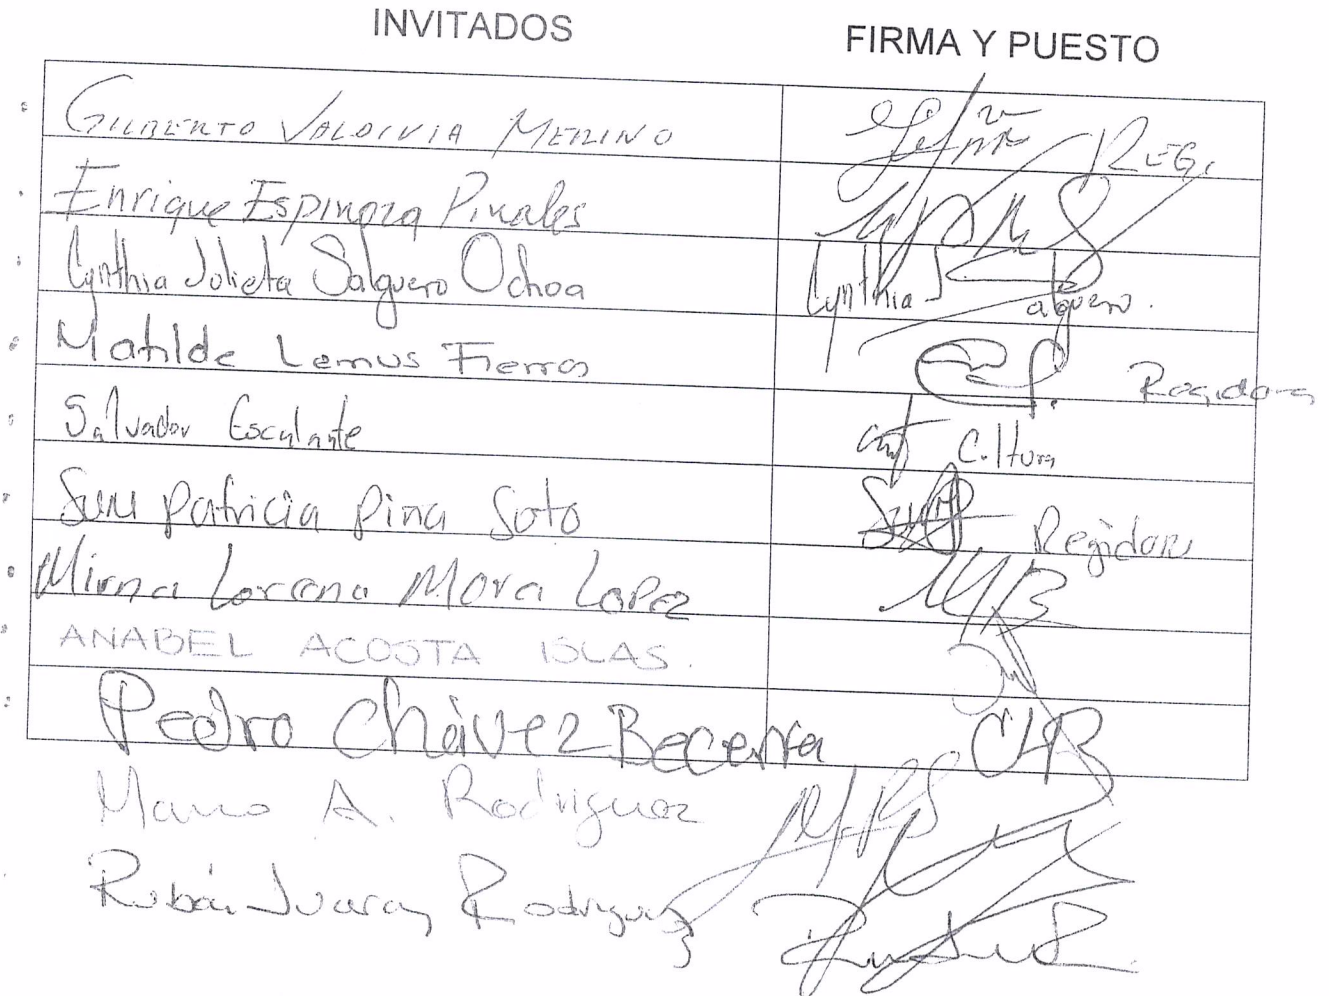 INVITADOS FIRMA Y PUESTO
GILBERTO VALDIVIA MERINO REG.
Enrique Espinoza Pinales
Cynthia Julieta Salguero Ochoa Cynthia Salguero.
Matilde Lemus Fierros Regidora
Salvador Escalante Cultura
Patricia Pina Soto Regidora
Mirna Lorena Mora Lopez
ANABEL ACOSTA ISLAS.
Pedro Chávez Becerra
Mario A. Rodriguez
Rubén Juarez Rodriguez